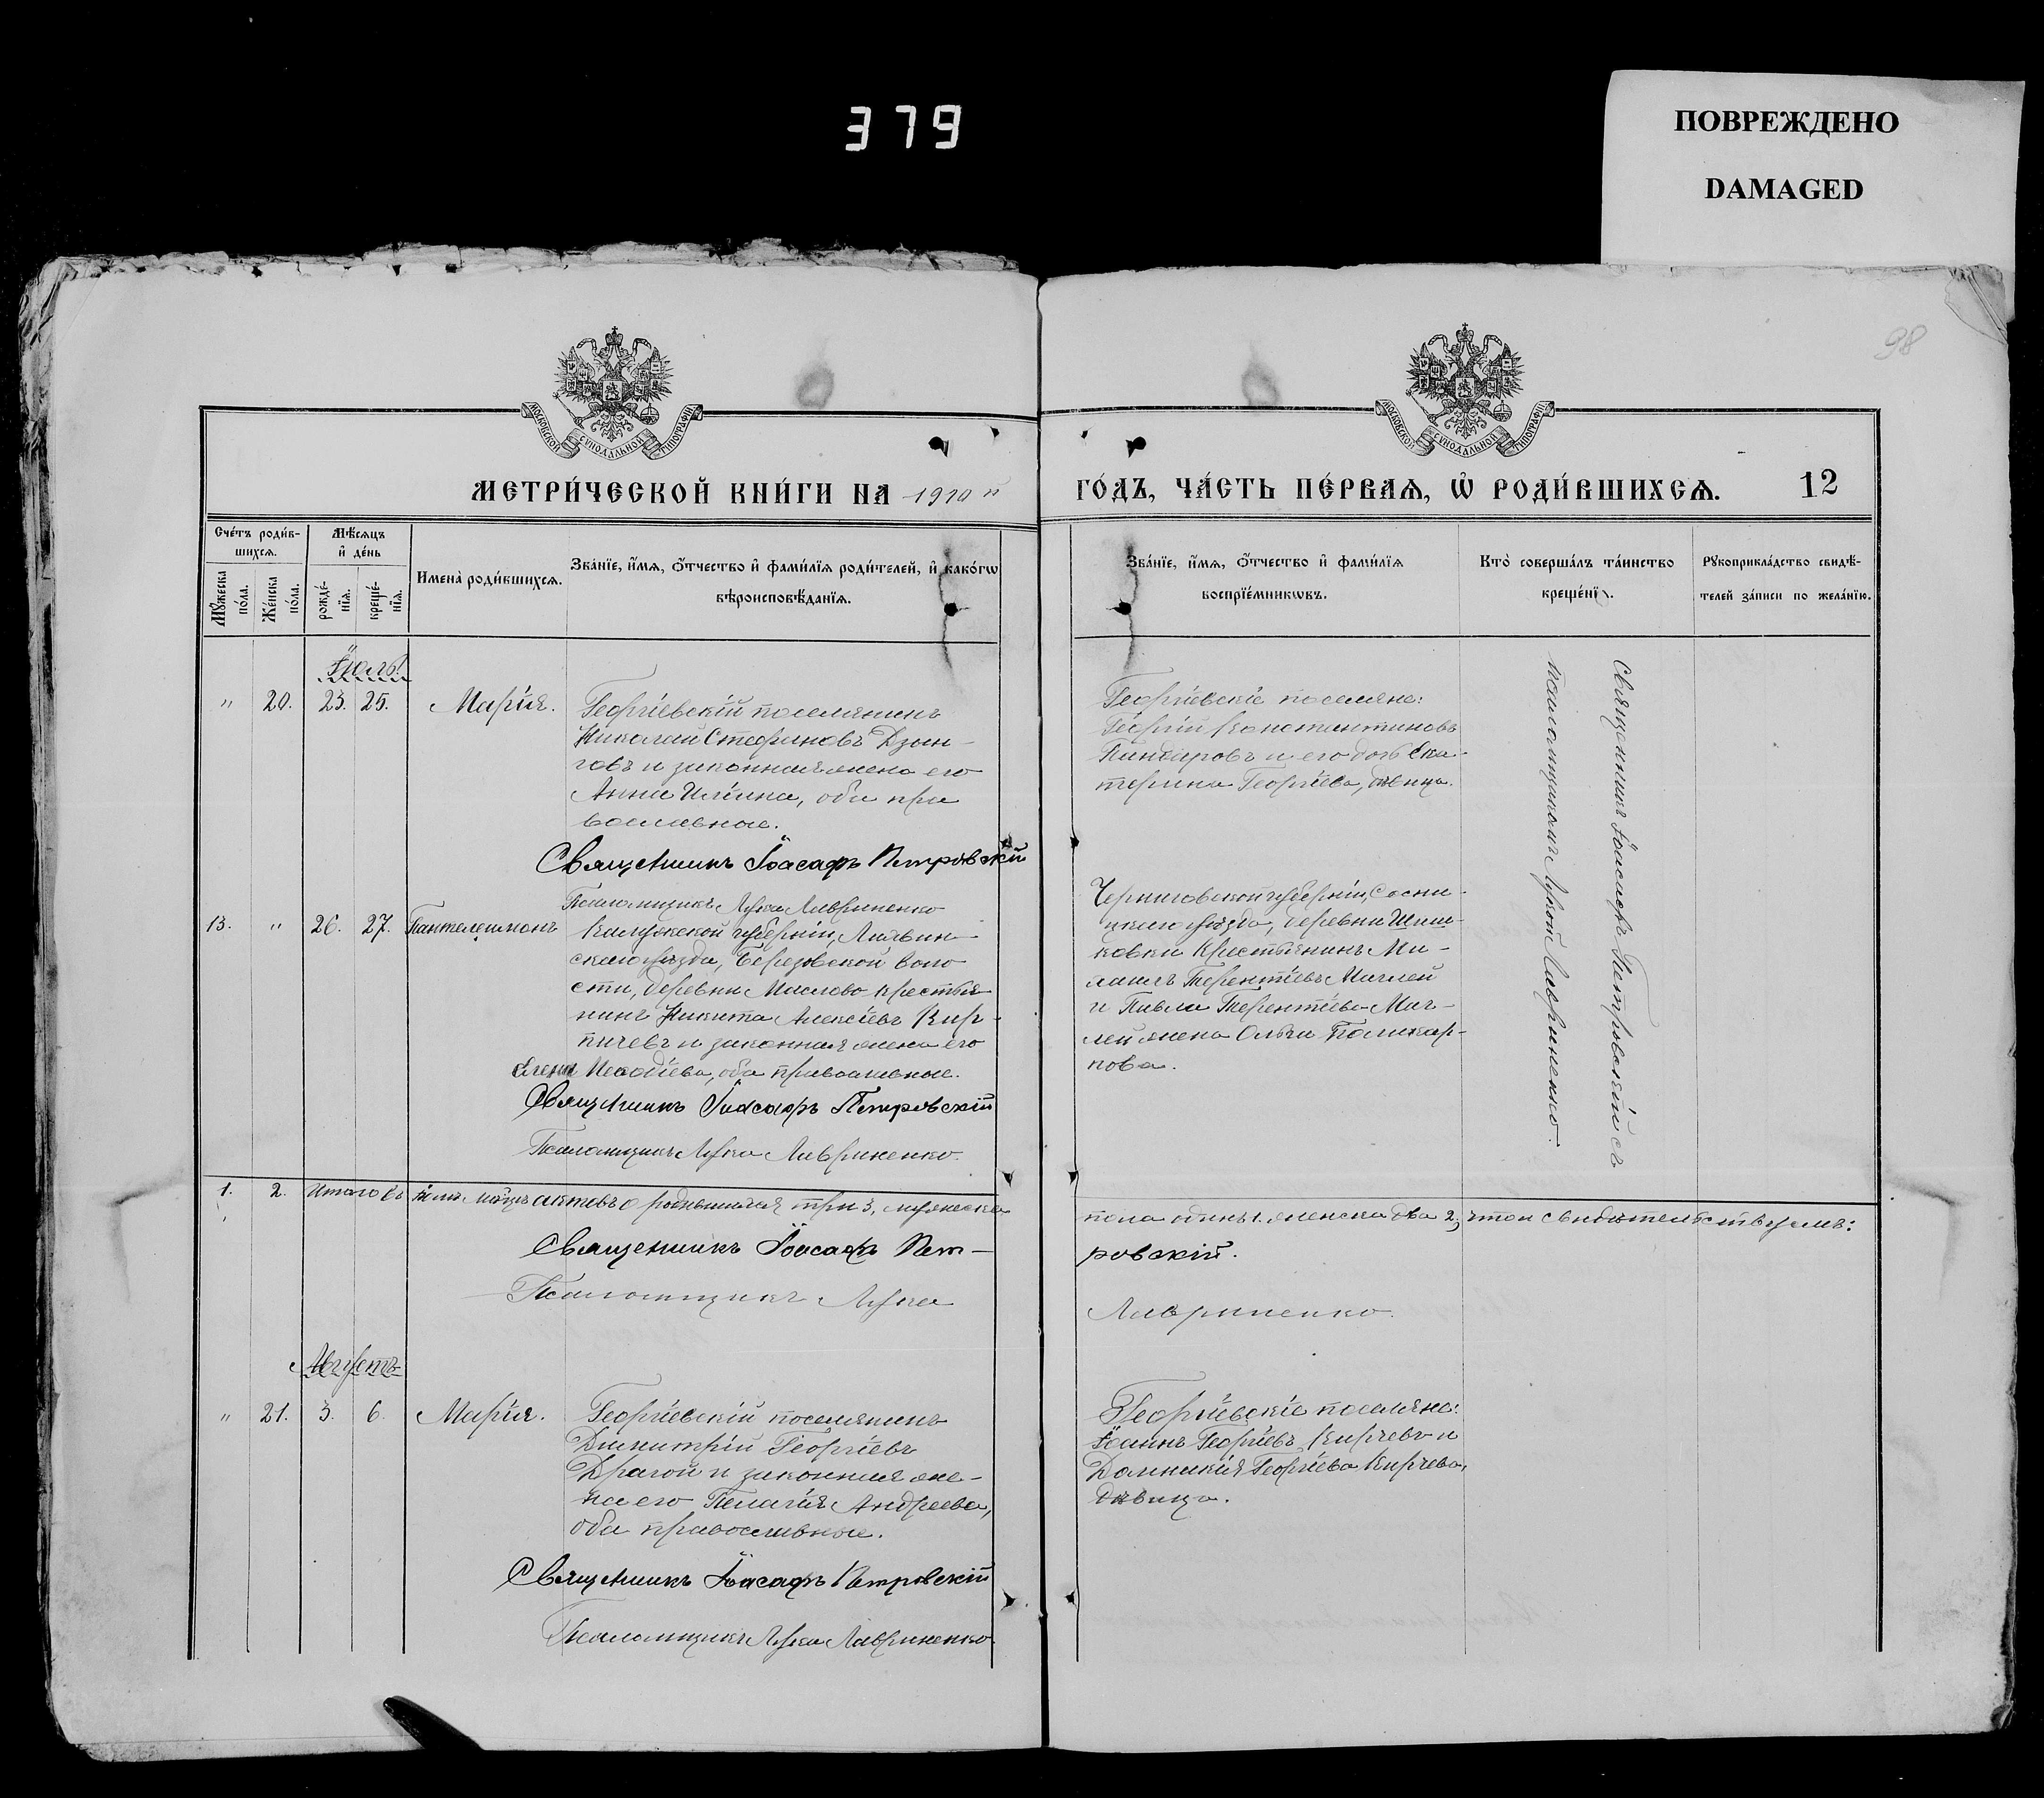 379
ПОВРЕЖДЕНО
DAMAGED
98
МОСКОВСКОЙ СУНОДАЛЬНОЙ ТИПОГРАФІИ
МОСКОВСКОЙ СУНОДАЛЬНОЙ ТИПОГРАФІИ
МЕТРИ́ЧЕСКОЙ КНИ́ГИ НА 1910 й
ГО́ДЪ, ЧА́СТЬ ПЕ́РВАѦ, Ѡ҆ РОДИ́ВШИХСѦ.
12
Сче́тъ роди́в-
шихсѧ.
Мꙋ́жеска по́ла.
Же́нска по́ла.
Мѣ́сѧцъ
и҆ де́нь
рожде́-
нїѧ.
креще́-
нїѧ.
Имена̀ роди́вшихсѧ.
Зва́нїе, и҆́мѧ, ѻ҆́тчество и҆ фами́лїѧ роди́телей, и҆ како́гѡ
вѣроисповѣ́данїѧ.
Зва́нїе, и҆́мѧ, ѻ҆́тчество и҆ фами́лїѧ
воспрїе́мникѡвъ.
Кто̀ соверша́лъ та́инство
креще́нїѧ.
Рꙋкоприкла́дство свидѣ́-
телей за́писи по жела́нїю.
Іюль.
" 20. 23. 25. Марія.
Георгіевскій поселянинъ
Николай Стефановъ Дзын-
говъ и законная жена его
Анна Ильина, оба пра
вославные.
Священникъ Іоасафъ Петровскій
Псаломщикъ Лука Лавриненко
Георгіевскіе поселяне:
Георгій Константиновъ
Пиндировъ и его дочь Ека-
терина Георгіева, дѣвица.
Священникъ Іоасафъ Петровскій съ
псаломщикомъ Лукой Лавриненко.
13. " 26. 27. Пантелеимонъ
Калужской губерніи, Лихвин
скаго уѣзда, Березовской воло
сти, деревни Маслово крестья
нинъ Никита Алексіевъ Кир-
пичевъ и законная жена его
Елена Меѳодіева, оба православные.
Священникъ Іоасафъ Петровскій
Псаломщикъ Лука Лавриненко.
Черниговской губерніи, Сосни-
цкаго уѣзда, деревни Шиш-
ковки крестьянинъ Ми-
хаилъ Терентіевъ
и Павла Терентіева
жена Ольга Поликар-
пова.
1. 2. Итого въ мѣсяцѣ актовъ о родившихся три 3, мужеска
пола одинъ 1. женска два 2, въ томъ свидѣтельствуемъ:
Священникъ Іоасафъ Пет-
ровскій.
Псаломщикъ Лука
Лавриненко.
Августъ
" 21. 3. 6. Марія.
Георгіевскій поселянинъ
Димитрій Георгіевъ
Драгой и законная же-
на его Пелагія Андреева,
оба православные.
Священникъ Іоасафъ Петровскій
Псаломщикъ Лука Лавриненко.
Георгіевскіе поселяне:
Іоаннъ Георгіевъ Кирчевъ и
Домникія Георгіева Кирчева,
дѣвица.